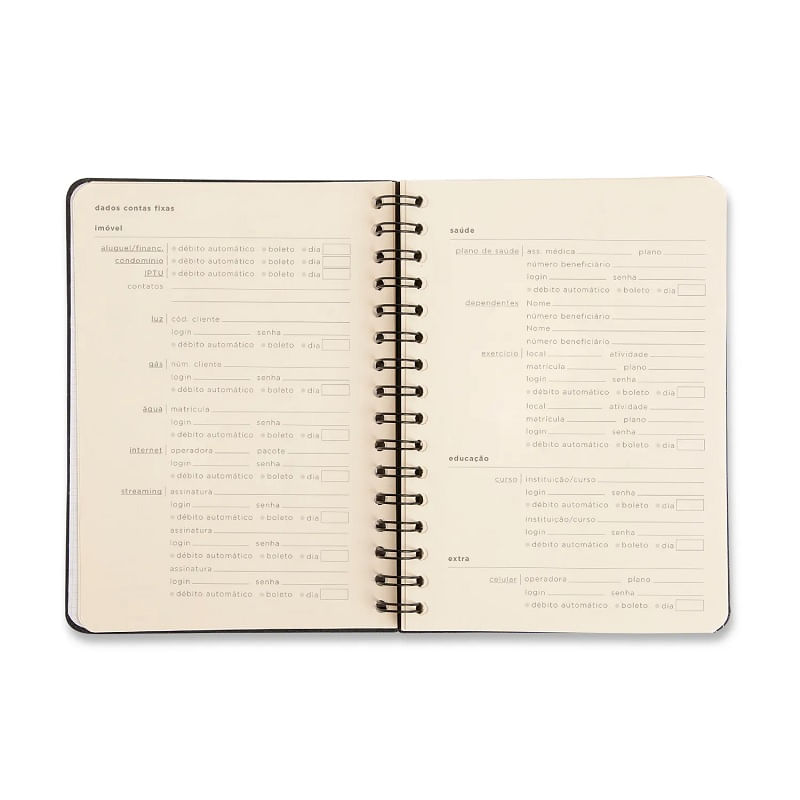 dados contas fixas
imóvel
aluguel/financ. débito automático boleto dia
condomínio débito automático boleto dia
IPTU débito automático boleto dia
contatos
luz cód. cliente
login senha
débito automático boleto dia
gás núm. cliente
login senha
débito automático boleto dia
água matrícula
login senha
débito automático boleto dia
internet operadora pacote
login senha
débito automático boleto dia
streaming assinatura
login senha
débito automático boleto dia
assinatura
login senha
débito automático boleto dia
assinatura
login senha
débito automático boleto dia
saúde
plano de saúde ass. médica plano
número beneficiário
login senha
débito automático boleto dia
dependentes Nome
número beneficiário
Nome
número beneficiário
exercício local atividade
matrícula plano
login senha
débito automático boleto dia
local atividade
matrícula plano
login senha
débito automático boleto dia
educação
curso instituição/curso
login senha
débito automático boleto dia
instituição/curso
login senha
débito automático boleto dia
extra
celular operadora plano
login senha
débito automático boleto dia